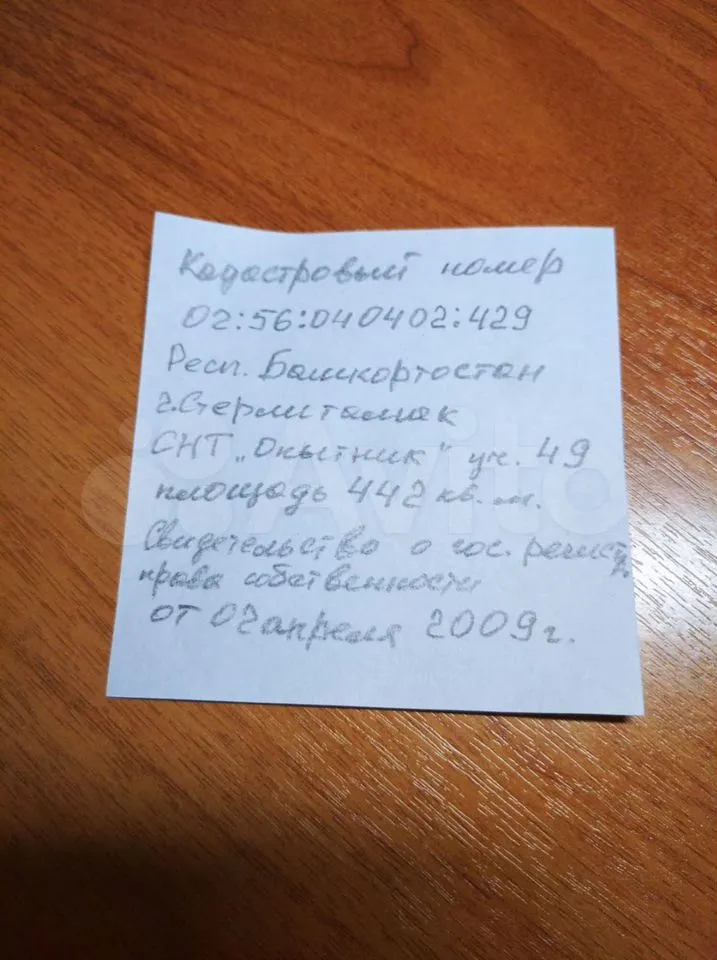 Кадастровый номер
02:56:040402:429
Респ. Башкортостан
г.Стерлитамак
СНТ „Опытник" уч. 49
площадь 442 кв. м.
Свидетельство о гос. регистр
права собственности
от 02 апреля 2009 г.
Avito